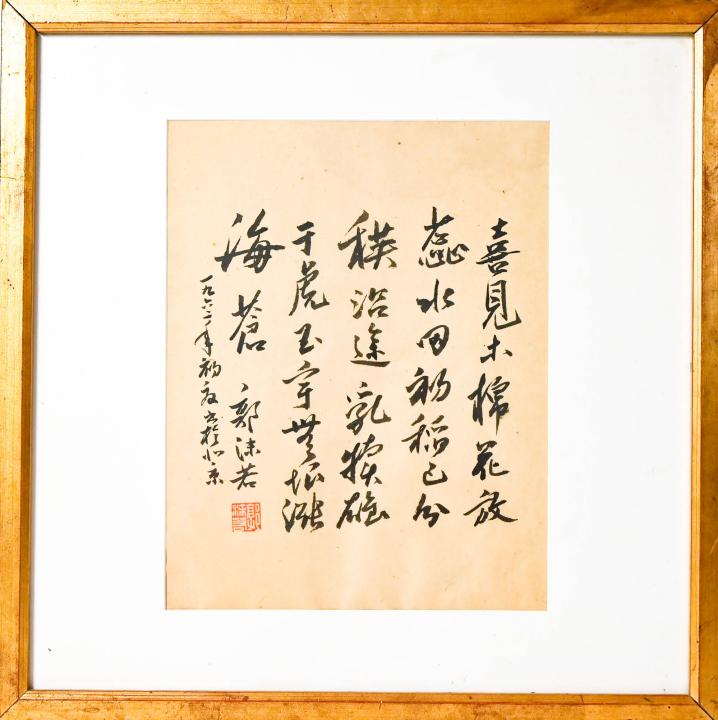 喜見木棉花放
蕊水田初稻已分
秧沿途乳犢雄
于虎玉宇無垠漲
海蒼
郭沫若
一九六二年初夏書於北京